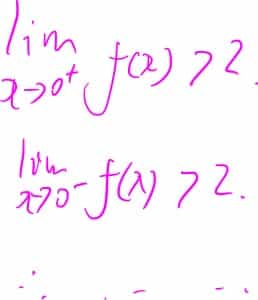 lim x→0⁺ f(x) > 2.
lim x→0⁻ f(x) > 2.